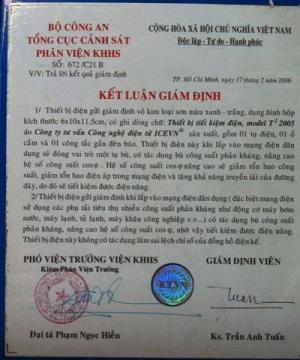 BỘ CÔNG AN
TỔNG CỤC CẢNH SÁT
PHÂN VIỆN KHHS
SỐ: 672 /C21 B
V/V: Trả lời kết quả giám định
CỘNG HÒA XÃ HỘI CHỦ NGHĨA VIỆT NAM
Độc lập - Tự do - Hạnh phúc
TP. Hồ Chí Minh, ngày 17 tháng 2 năm 2006
KẾT LUẬN GIÁM ĐỊNH
1/ Thiết bị điện gửi giám định vỏ kim loại sơn màu xanh - trắng, dạng hình hộp
kích thước 6x10x11.5cm, có ghi dòng chữ: Thiết bị tiết kiệm điện, model T² 2005
do Công ty tư vấn Công nghệ điện tử ICEVN® sản xuất, gồm 01 tụ điện, 01 ổ
cắm và 01 công tắc gắn đèn báo. Thiết bị điện này khi lắp vào mạng điện dân
dụng sẽ đóng vai trò một tụ bù, có tác dụng bù công suất phản kháng, nâng cao
hệ số công suất cosφ. Hệ số công suất cosφ nâng cao sẽ giảm tổn hao công suất,
giảm tổn hao điện áp trong mạng điện và tăng khả năng truyền tải của đường
dây, do đó sẽ tiết kiệm được điện năng.
2/ Thiết bị điện gửi giám định khi lắp vào mạng điện dân dụng (đặc biệt mạng điện
sử dụng các phụ tải tiêu thụ nhiều công suất phản kháng như động cơ máy bơm
nước, máy lạnh, tủ lạnh, máy khâu công nghiệp v.v...) có tác dụng bù công suất
phản kháng, nâng cao hệ số công suất cosφ, nhờ vậy tiết kiệm được điện năng.
Thiết bị điện này không có tác dụng làm sai lệch chỉ số của đồng hồ điện kế.
PHÓ VIỆN TRƯỞNG VIỆN KHHS
Kiêm Phân Viện Trưởng
GIÁM ĐỊNH VIÊN
Đại tá Phạm Ngọc Hiền
Ks. Trần Anh Tuấn